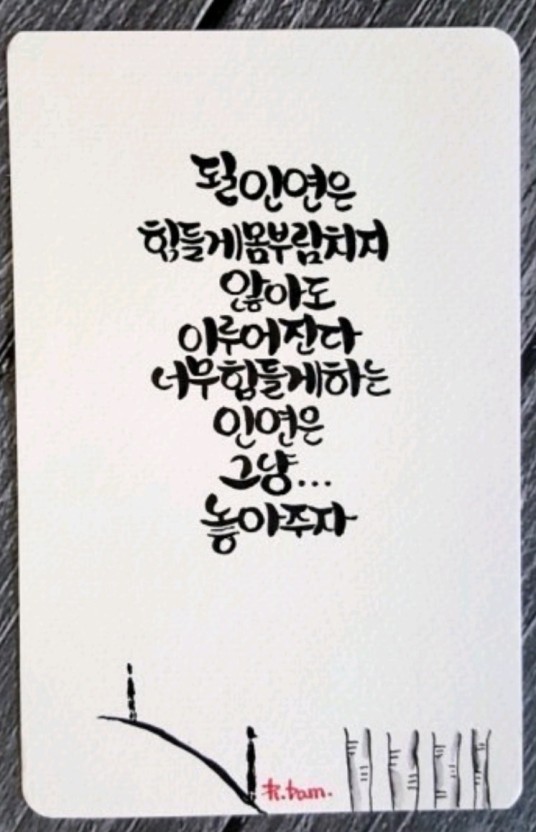 될인연은
힘들게몸부림치지
않아도
이루어진다
너무힘들게하는
인연은
그냥...
놓아주자